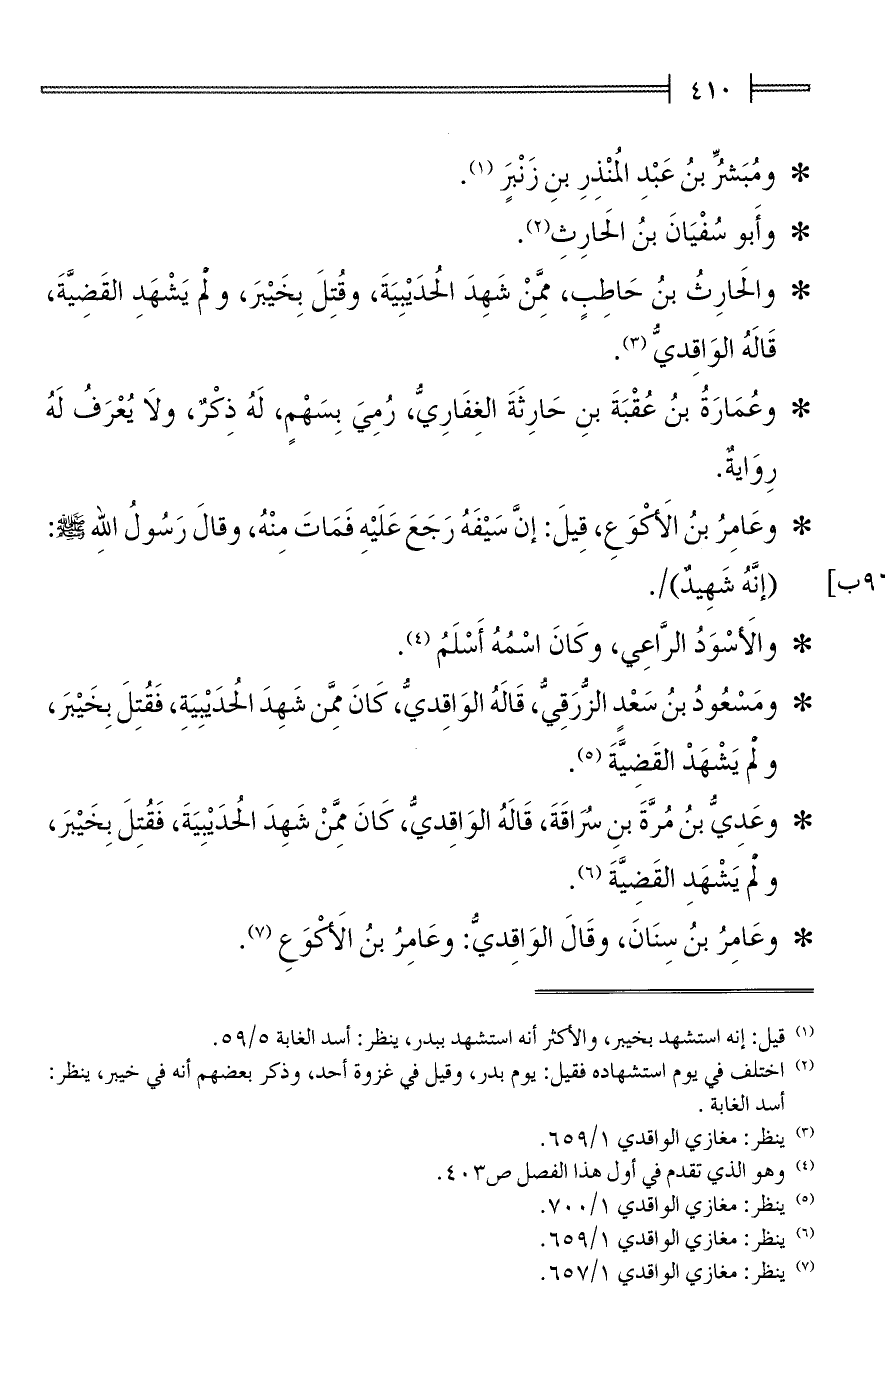 ٤١٠
* ومُبَشرُّ بنُ عَبْدِ المُنْذِرِ بنِ زَنْبَرٍ (١).
* وأَبو سُفْيَانَ بنُ الحَارِثِ(٢).
* والحَارِثُ بنُ حَاطِبٍ، ممَّنْ شَهِدَ الحُدَيْبِيَةَ، وقُتِلَ بِخَيْبرَ، ولمْ يَشْهَدِ القَضِيَّةَ،
قَالَهُ الوَاقِديُّ (٣).
* وعُمَارَةُ بنُ عُقْبَةَ بنِ حَارِثَةَ الغِفَاريُّ، رُمِيَ بِسَهْمٍ، لَهُ ذِكْرٌ، ولاَ يُعْرَفُ لَهُ
رِوَايةٌ.
* وعَامِرُ بنُ الَأكْوَعِ، قِيلَ: إنَّ سَيْفَهُ رَجَعَ عَلَيْهِ فَمَاتَ مِنْهُ، وقالَ رَسُولُ اللهِ ﷺ:
(إنَّهُ شَهِيدٌ)/.
٩٦ب]
* والَأسْوَدُ الرَّاعِي، وكَانَ اسْمُهُ أَسْلَمُ (٤).
* ومَسْعُودُ بنُ سَعْدٍ الزُّرَقِيُّ، قَالَهُ الوَاقِديُّ، كَانَ ممَّن شَهِدَ الحُدَيْبِيَةِ، فَقُتِلَ بِخَيْبَرَ،
ولمْ يَشْهَدْ القَضِيَّةَ (٥).
* وعَدِيُّ بنُ مُرَّةَ بنِ سُرَاقَةَ، قَالَهُ الوَاقِديُّ، كَانَ ممَّنْ شَهِدَ الحُدَيْبِيَةَ، فَقُتِلَ بِخَيْبَرَ،
ولمْ يَشْهَدِ القَضِيَّةَ (٦).
* وعَامِرُ بنُ سِنَانَ، وقَالَ الوَاقِديُّ: وعَامِرُ بنُ الَأكْوَعِ (٧).
(١) قيل: إنه استشهد بخيبر، والأكثر أنه استشهد ببدر، ينظر: أسد الغابة ٥٩/٥.
(٢) اختلف في يوم استشهاده فقيل: يوم بدر، وقيل في غزوة أحد، وذكر بعضهم أنه في خيبر، ينظر:
أسد الغابة .
(٣) ينظر: مغازي الواقدي ٦٥٩/١.
(٤) وهو الذي تقدم في أول هذا الفصل ص٤٠٣.
(٥) ينظر: مغازي الواقدي ٧٠٠/١.
(٦) ينظر: مغازي الواقدي ٦٥٩/١.
(٧) ينظر: مغازي الواقدي ٦٥٧/١.